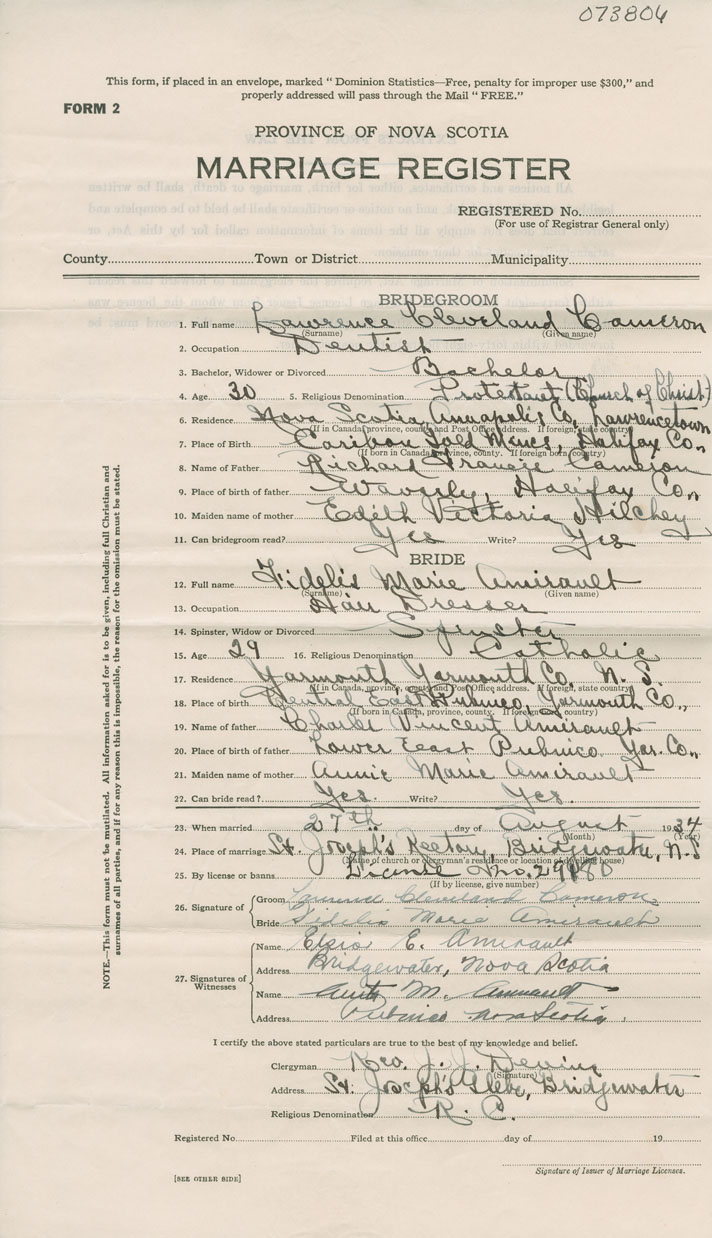 073804
This form, if placed in an envelope, marked " Dominion Statistics—Free, penalty for improper use $300," and
properly addressed will pass through the Mail " FREE."
FORM 2
PROVINCE OF NOVA SCOTIA
MARRIAGE REGISTER
REGISTERED No.
(For use of Registrar General only)
County Town or District Municipality
BRIDEGROOM
1. Full name Lawrence Cleveland Cameron
(Surname) (Given name)
2. Occupation Dentist
3. Bachelor, Widower or Divorced Bachelor
4. Age 30 5. Religious Denomination Protestant (Church of Christ)
6. Residence Nova Scotia, Annapolis Co, Lawrencetown
(If in Canada, province, county and Post Office address. If foreign, state country)
7. Place of Birth Caribou Gold Mines, Halifax Co.,
(If born in Canada, province, county. If foreign born, country)
8. Name of Father Richard Francis Cameron
9. Place of birth of father Waverly, Halifax Co.,
10. Maiden name of mother Edith Victoria Hilchey
11. Can bridegroom read? Yes Write? Yes
BRIDE
12. Full name Fidelis Marie Amirault
(Surname) (Given name)
13. Occupation Hair Dresser
14. Spinster, Widow or Divorced Spinster
15. Age 29 16. Religious Denomination Catholic
17. Residence Yarmouth Yarmouth Co, N. S.
(If in Canada, province, county and Post Office address. If foreign, state country)
18. Place of birth Central East Pubnico, Yarmouth Co.,
(If born in Canada, province, county. If foreign and country)
19. Name of father Charles Vincent Amirault
20. Place of birth of father Lower East Pubnico Yar. Co.,
21. Maiden name of mother Annie Marie Amirault
22. Can bride read? Yes. Write? Yes.
23. When married 27th day of August 1934
(Month) (Year)
24. Place of marriage St. Joseph's Rectory, Bridgewater, N.S
(Name of church or clergyman's residence or location of dwelling house)
25. By license or banns License No.
(If by license, give number)
26. Signature of Groom Lawrence Cleveland Cameron
Bride Fidelis Marie Amirault
27. Signatures of Witnesses
Name E. Amirault
Address Bridgewater, Nova Scotia
Name M. Amirault
Address Pubnico Nova Scotia.
I certify the above stated particulars are true to the best of my knowledge and belief.
Clergyman Rev. J. J. Devine
(Signature)
Address St. Joseph's Glebe, Bridgewater
Religious Denomination R. C.
Registered No. Filed at this office day of 19
Signature of Issuer of Marriage Licenses.
[SEE OTHER SIDE]
NOTE.—This form must not be mutilated. All information asked for is to be given, including full Christian and
surnames of all parties, and if for any reason this is impossible, the reason for the omission must be stated.